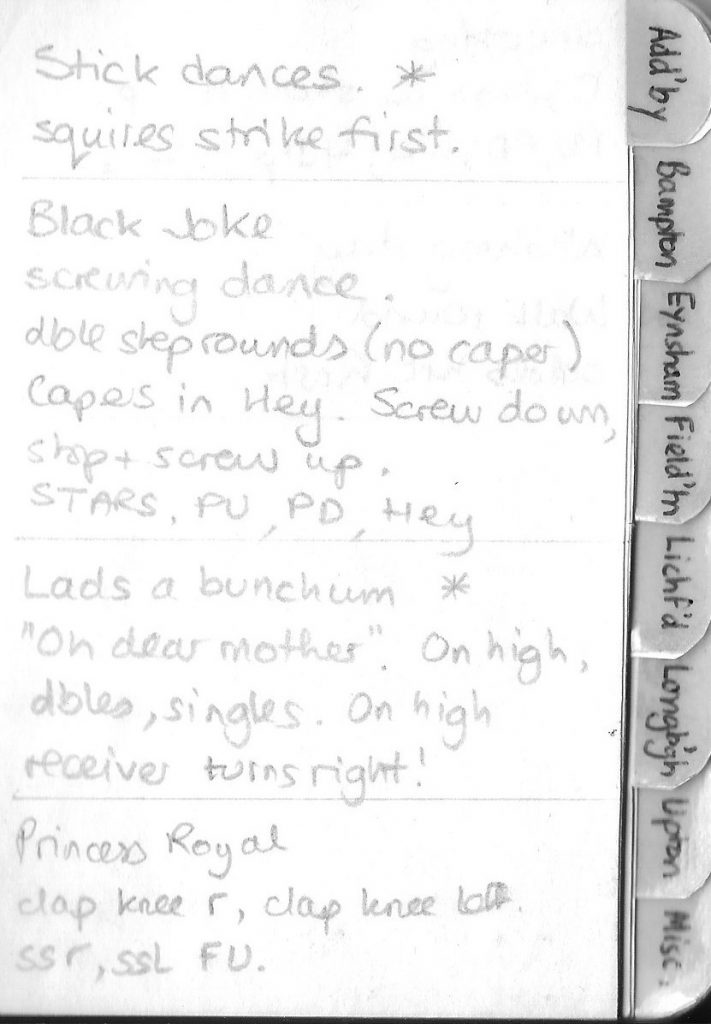 Stick dances. *
squires strike first.
Black Joke
screwing dance.
dble step rounds (no caper)
Capes in Hey. Screw down,
stop + screw up.
STARS, PU, PD, Hey
Lads a bunchum *
"Oh dear mother". On high,
dbles, singles. On high
receiver turns right!
Princess Royal
clap knee r, clap knee
ssr, ssL FU.
Add'by
Bampton
Eynsham
Field'tn
Lichf'd
Longb'gh
Upton
Misc: